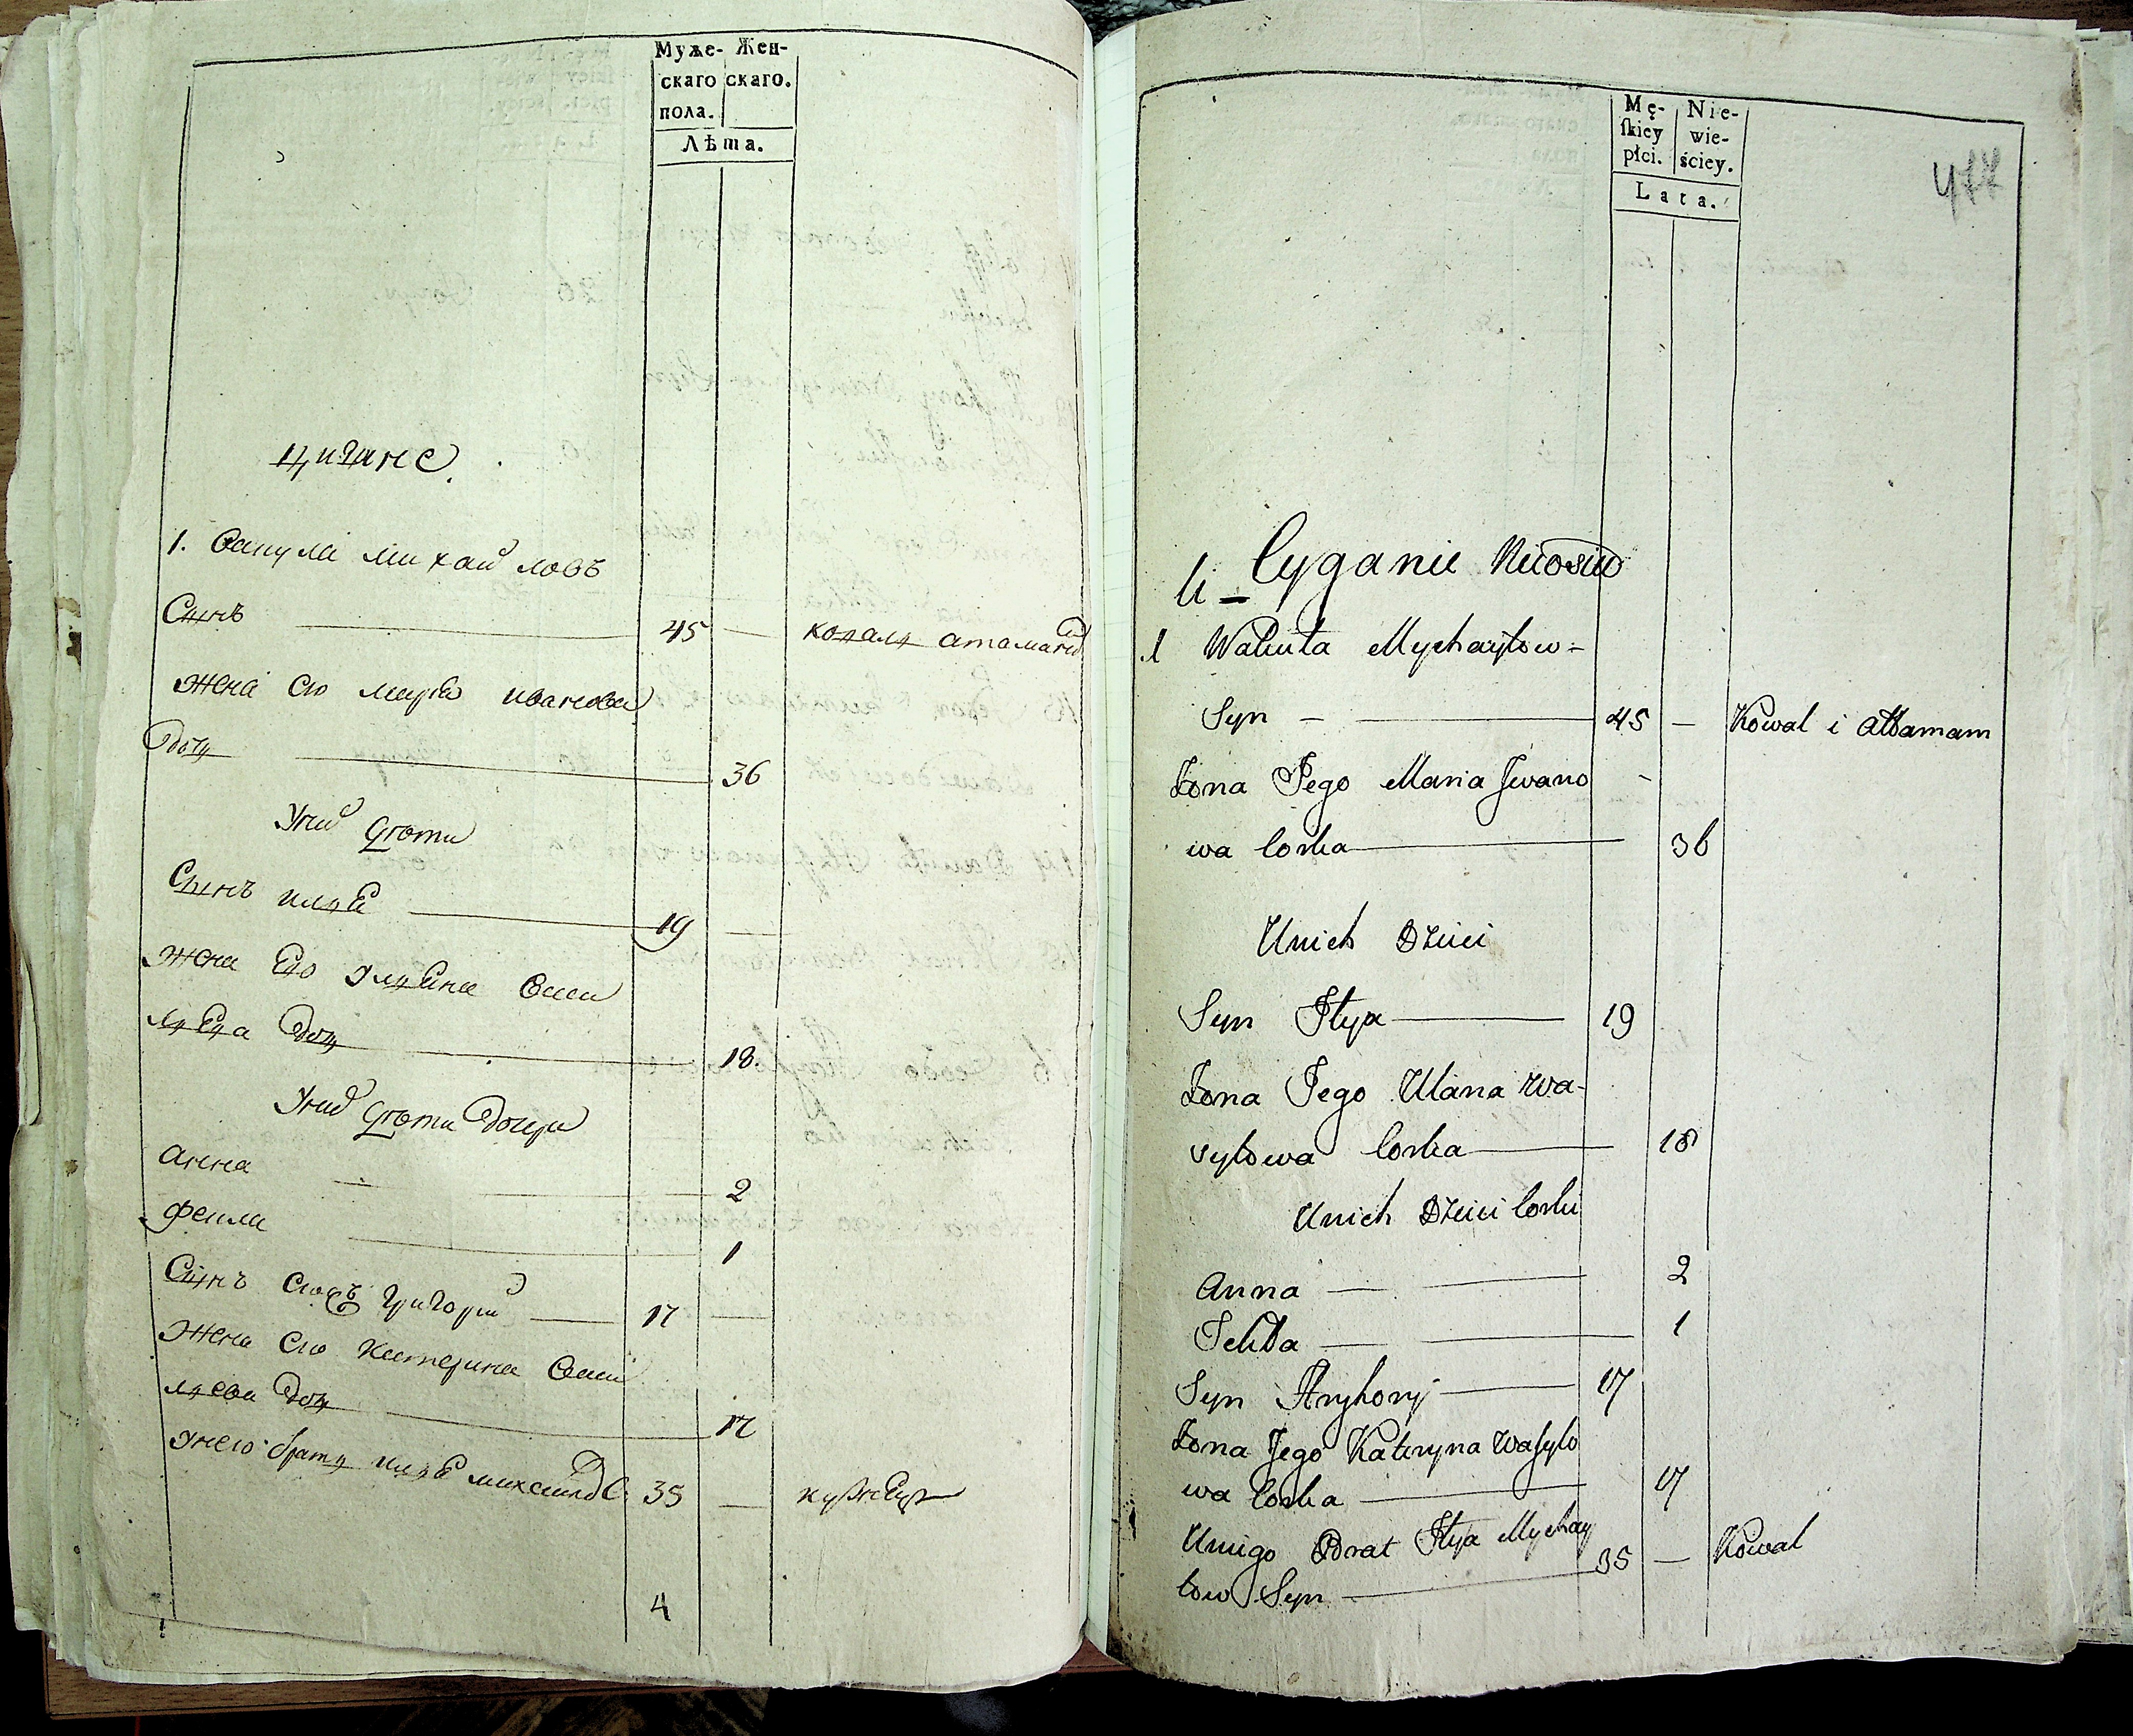 Муже- Жен-
скаго скаго.
пола.
Лѣта.
цигане
1. Вакула михайловъ
Синъ 45 — коваль атаманъ
жена его мария иванова
дочь 36
Унихъ дѣти
Синъ илья 19 —
жена его улияна васи
льева дочь 18.
Унихъ дѣти дочери
анна 2
фекла 1
Синъ григорий 17 —
жена его катерина васи
льева дочь 17
унего братъ илья михайловъ С. 35 — кузнецъ
4
Mę- Nie-
ſkiey wie-
płci. ściey.
Lata.
477
Cyganie
1 Wakuła Mychayłow-
Syn — 45 — Kowal i Attamam
Żona Jego Maria Jwano
wa Corka 36
Unich Dzieci
Syn Ilya 19
Żona Jego Ulana Wa-
sylowa Corka 18
Unich Dzieci Corki
Anna — 2
Tekla — 1
Syn Hryhory 17
Żona Jego Kateryna Waſylo
wa Corka 17
Uniego Brat Ilya Mychay
łow Syn 35 — Kowal